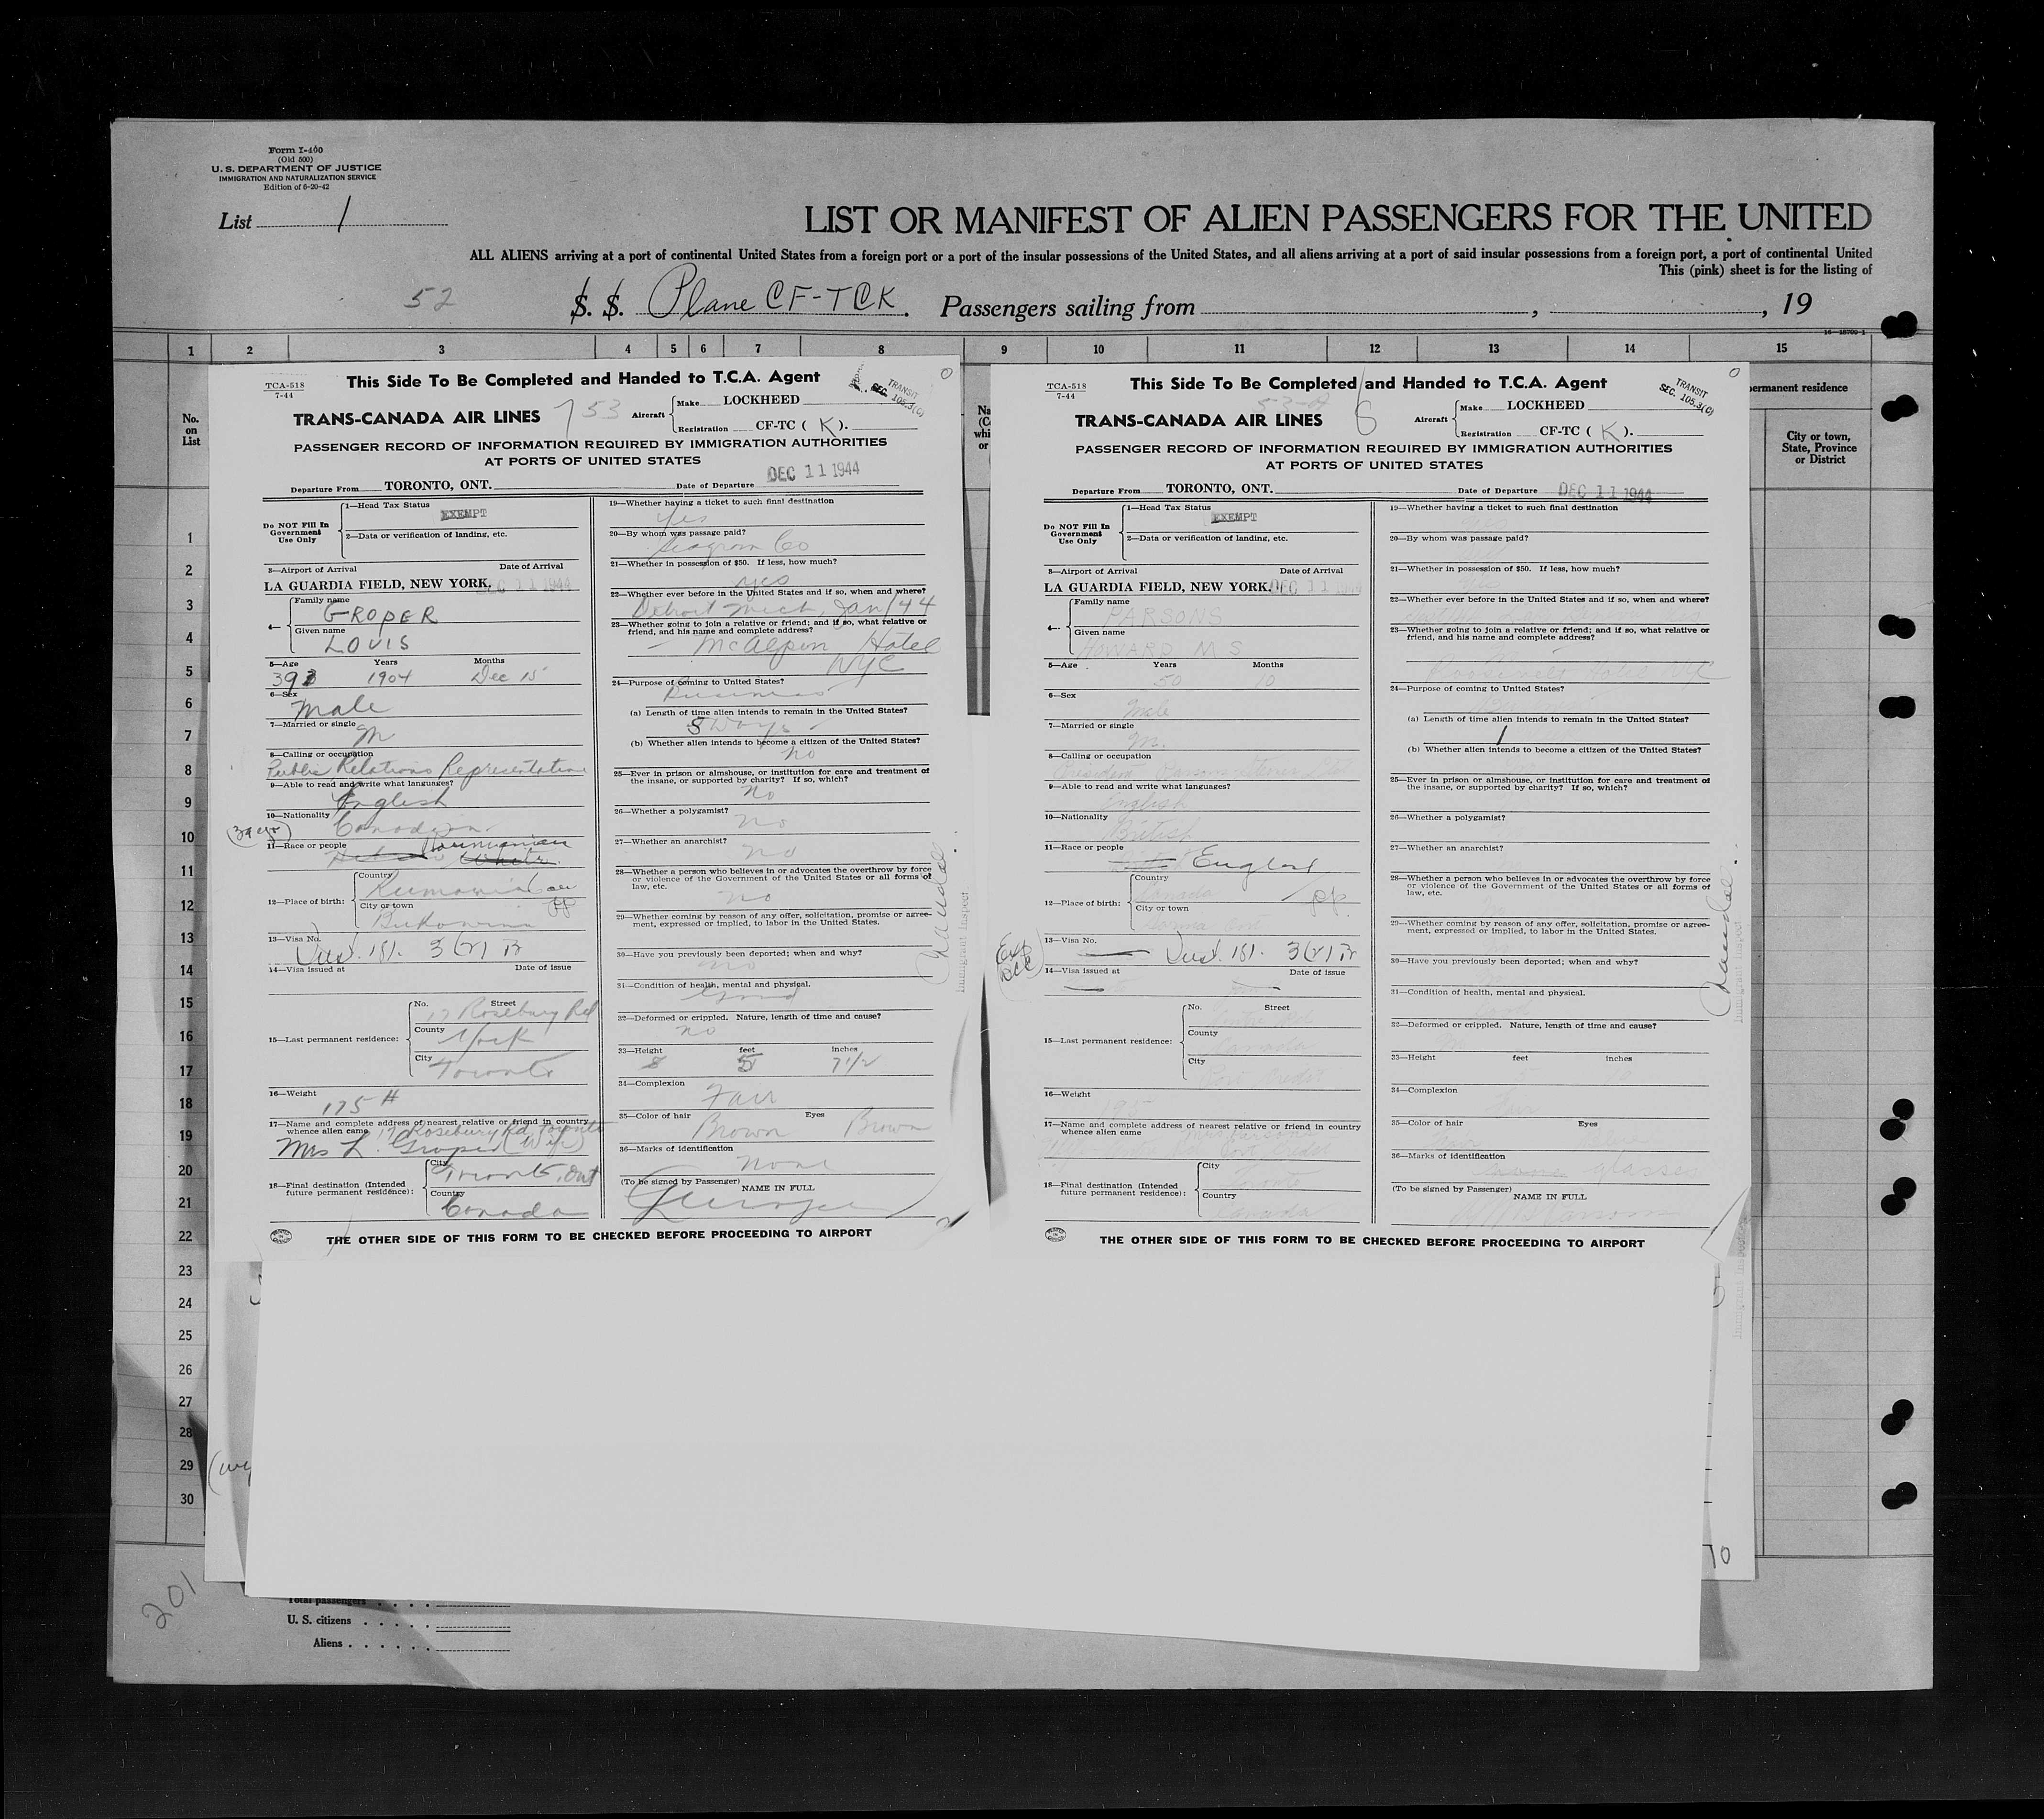 Form I-400
(Old 500)
U. S. DEPARTMENT OF JUSTICE
IMMIGRATION AND NATURALIZATION SERVICE
Edition of 6-20-42
List 1
LIST OR MANIFEST OF ALIEN PASSENGERS FOR THE UNITED
ALL ALIENS arriving at a port of continental United States from a foreign port or a port of the insular possessions of the United States, and all aliens arriving at a port of said insular possessions from a foreign port, a port of continental United
This (pink) sheet is for the listing of
52
S. S. Plane CF-TCK. Passengers sailing from , , 19
1 2 3 4 5 6 7 8 9 10 11 12 13 14 15
No. on List
permanent residence
City or town, State, Province or District
1
2
3
4
5
6
7
8
9
10
11
12
13
14
15
16
17
18
19
20
21
22
23
24
25
26
27
28
29
30
TCA-518
7-44
This Side To Be Completed and Handed to T.C.A. Agent
TRANSIT
SEC. 105.3(C)
TRANS-CANADA AIR LINES
7 53
Aircraft
Make LOCKHEED
Registration CF-TC ( K ).
PASSENGER RECORD OF INFORMATION REQUIRED BY IMMIGRATION AUTHORITIES
AT PORTS OF UNITED STATES
Departure From TORONTO, ONT. Date of Departure DEC 11 1944
Do NOT Fill In Government Use Only
1—Head Tax Status
EXEMPT
2—Data or verification of landing, etc.
3—Airport of Arrival Date of Arrival
LA GUARDIA FIELD, NEW YORK. DEC 11 1944
4—
Family name
GROPER
Given name
LOUIS
5—Age Years Months
39 1904 Dec 15
6—Sex
Male
7—Married or single
M
8—Calling or occupation
Public Relations Representative
9—Able to read and write what languages?
English
10—Nationality
Canadian
11—Race or people
Roumanian
White
12—Place of birth:
Country
Rumania
City or town
Bukowina
13—Visa No.
Just. 181. 3(2) Tr
14—Visa issued at Date of issue
15—Last permanent residence:
No. Street
17 Rosebury Rd
County
York
City
Toronto
16—Weight
175 #
17—Name and complete address of nearest relative or friend in country whence alien came
17 Rosebury Rd Toronto
Mrs L. Groper (Wife)
18—Final destination (Intended future permanent residence):
City
Toronto, Ont
Country
Canada
19—Whether having a ticket to such final destination
Yes
20—By whom was passage paid?
Seagram Co
21—Whether in possession of $50. If less, how much?
yes
22—Whether ever before in the United States and if so, when and where?
Detroit Mich, Jan/44
23—Whether going to join a relative or friend; and if so, what relative or friend, and his name and complete address?
McAlpin Hotel
NYC
24—Purpose of coming to United States?
Business
(a) Length of time alien intends to remain in the United States?
5 Days
(b) Whether alien intends to become a citizen of the United States?
no
25—Ever in prison or almshouse, or institution for care and treatment of the insane, or supported by charity? If so, which?
No
26—Whether a polygamist?
No
27—Whether an anarchist?
No
28—Whether a person who believes in or advocates the overthrow by force or violence of the Government of the United States or all forms of law, etc.
No
29—Whether coming by reason of any offer, solicitation, promise or agreement, expressed or implied, to labor in the United States.
30—Have you previously been deported; when and why?
no
31—Condition of health, mental and physical.
Good
32—Deformed or crippled. Nature, length of time and cause?
no
33—Height feet inches
5 7 1/2
34—Complexion
Fair
35—Color of hair Eyes
Brown Brown
36—Marks of identification
None
(To be signed by Passenger)
NAME IN FULL
Immigrant Inspect
THE OTHER SIDE OF THIS FORM TO BE CHECKED BEFORE PROCEEDING TO AIRPORT
TCA-518
7-44
This Side To Be Completed and Handed to T.C.A. Agent
TRANSIT
SEC. 105.3(C)
TRANS-CANADA AIR LINES
6
Aircraft
Make LOCKHEED
Registration CF-TC ( K ).
PASSENGER RECORD OF INFORMATION REQUIRED BY IMMIGRATION AUTHORITIES
AT PORTS OF UNITED STATES
Departure From TORONTO, ONT. Date of Departure DEC 11 1944
Do NOT Fill In Government Use Only
1—Head Tax Status
EXEMPT
2—Data or verification of landing, etc.
3—Airport of Arrival Date of Arrival
LA GUARDIA FIELD, NEW YORK. DEC 11 1944
4—
Family name
PARSONS
Given name
HOWARD M S
5—Age Years Months
50 10
6—Sex
Male
7—Married or single
M.
8—Calling or occupation
President
9—Able to read and write what languages?
English
10—Nationality
British
11—Race or people
English
12—Place of birth:
Country
Canada
City or town
13—Visa No.
Just. 181. 3(2) Tr
14—Visa issued at Date of issue
15—Last permanent residence:
No. Street
County
Canada
City
Port Credit
16—Weight
195
17—Name and complete address of nearest relative or friend in country whence alien came
Mrs Parsons
Port Credit
18—Final destination (Intended future permanent residence):
City
Toronto
Country
Canada
19—Whether having a ticket to such final destination
20—By whom was passage paid?
21—Whether in possession of $50. If less, how much?
22—Whether ever before in the United States and if so, when and where?
23—Whether going to join a relative or friend; and if so, what relative or friend, and his name and complete address?
24—Purpose of coming to United States?
(a) Length of time alien intends to remain in the United States?
1
(b) Whether alien intends to become a citizen of the United States?
25—Ever in prison or almshouse, or institution for care and treatment of the insane, or supported by charity? If so, which?
26—Whether a polygamist?
27—Whether an anarchist?
28—Whether a person who believes in or advocates the overthrow by force or violence of the Government of the United States or all forms of law, etc.
29—Whether coming by reason of any offer, solicitation, promise or agreement, expressed or implied, to labor in the United States.
30—Have you previously been deported; when and why?
31—Condition of health, mental and physical.
32—Deformed or crippled. Nature, length of time and cause?
33—Height feet inches
34—Complexion
35—Color of hair Eyes
36—Marks of identification
glasses
(To be signed by Passenger)
NAME IN FULL
THE OTHER SIDE OF THIS FORM TO BE CHECKED BEFORE PROCEEDING TO AIRPORT
10
201
Total passengers
U. S. citizens
Aliens